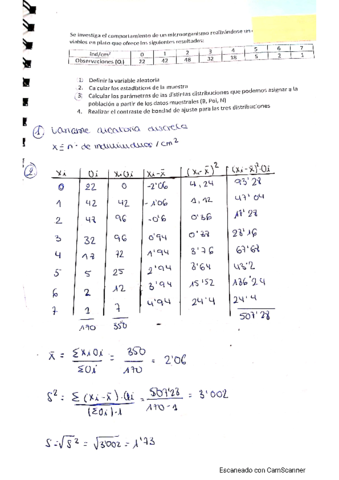 Se investiga el comportamiento de un microorganismo realizándose un
viables en placa que ofrece los siguientes resultados:
Ind/cm² 0 1 2 3 4 5 6 7
Observaciones (Oi) 22 42 48 32 18 5 2 1
1. Definir la variable aleatoria
2. Calcular los estadísticos de la muestra
3. Calcular los parámetros de las distintas distribuciones que podemos asignar a la
población a partir de los datos muestrales (B, Poi, N)
4. Realizar el contraste de bondad de ajuste para las tres distribuciones
① Variable aleatoria discreta
x ≡ nº de individuos / cm²
②
xi Oi xiOi xi-x̄ (xi-x̄)² (xi-x̄)²·Oi
0 22 0 -2'06 4,24 93'28
1 42 42 -1'06 1,12 47'04
2 48 96 -0'6 0'36 17'28
3 32 96 0'94 0'88
4 18 72 1'94 3'76 67'68
5 5 25 2'94 8'64 43'2
6 2 12 3'94 15'52
7 1 7 4'94 24'4 24'4
170 350 507'28
x̄ = ΣxiOi / ΣOi = 350 / 170 = 2'06
S² = Σ(xi-x̄)²·Oi / (ΣOi)-1 = 507'28 / 170-1 = 3'002
S=√S² = √3'002 = 1'73
Escaneado con CamScanner